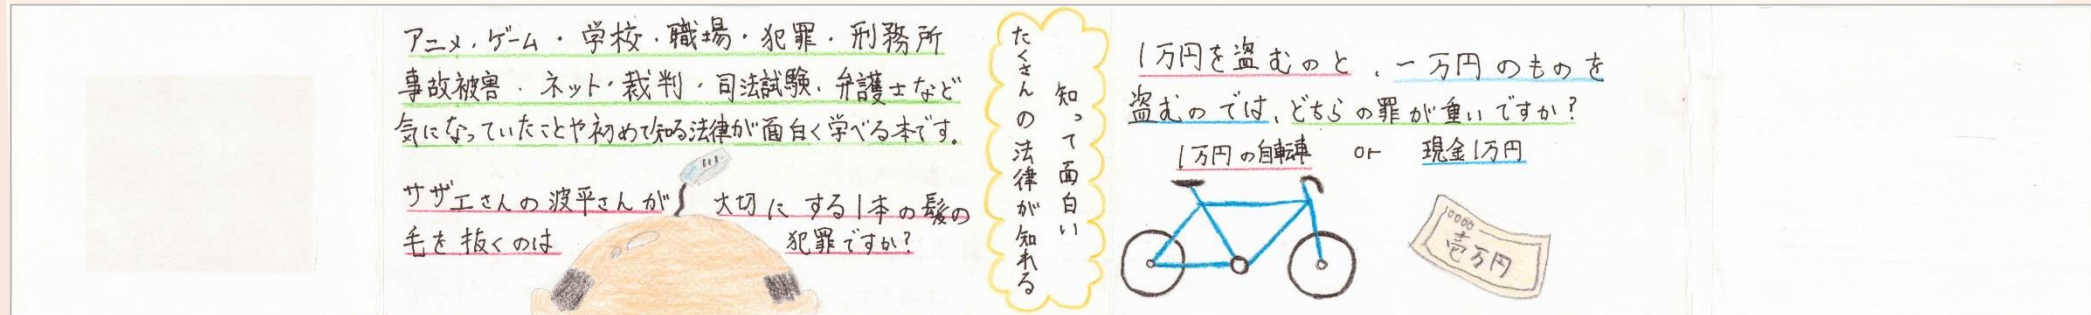 アニメ・ゲーム・学校・職場・犯罪・刑務所
事故被害・ネット・裁判・司法試験・弁護士など
気になっていたことや初めて知る法律が面白く学べる本です。
サザエさんの波平さんが大切にする1本の髪の
毛を抜くのは犯罪ですか?
知って面白い
たくさんの法律が知れる
1万円を盗むのと、一万円のものを
盗むのでは、どちらの罪が重いですか?
1万円の自転車 or 現金1万円
10000
壱万円